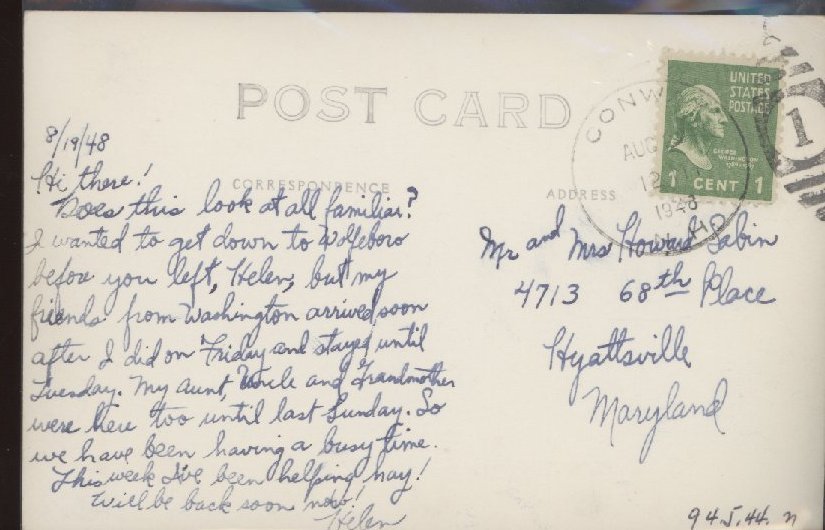 POST CARD
CORRESPONDENCE
ADDRESS
8/19/48
Hi there!
Does this look at all familiar?
I wanted to get down to Wolfeboro
before you left, Helen, but my
friends from Washington arrived soon
after I did on Friday and stayed until
Tuesday. My Aunt, Uncle and Grandmother
were here too until last Sunday. So
we have been having a busy time.
This week I've been helping hay!
Will be back soon now!
Helen
CONW
AUG
12
1948
N.H.
UNITED
STATES
POSTAGE
GEORGE
WASHINGTON
1 CENT 1
1
Mr and Mrs Howard Sabin
4713 68th Place
Hyattsville
Maryland
94.5.44. n